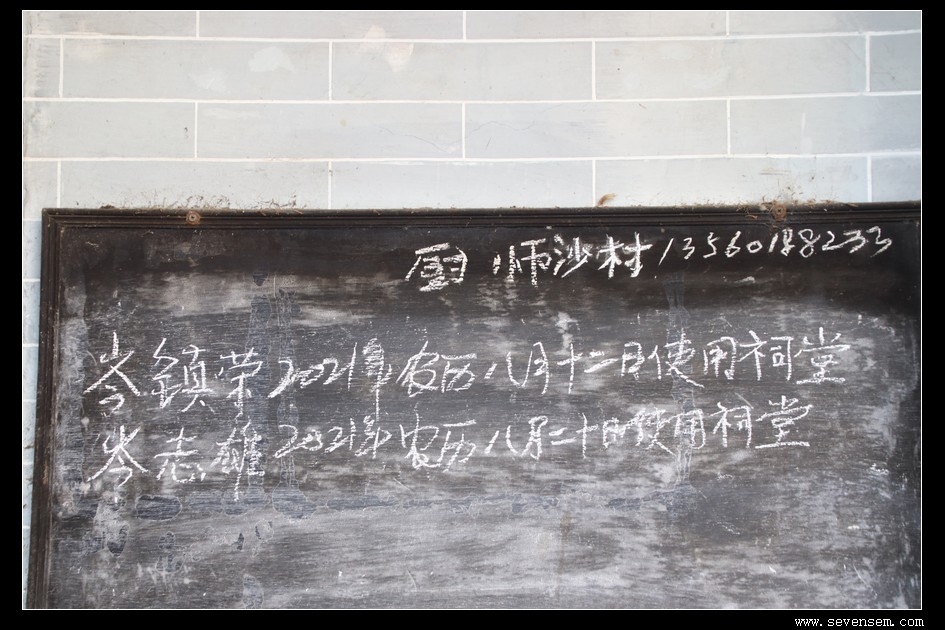 厨师沙村13560188233
岑鎮荣2021年农历八月十二日使用祠堂
岑志雄2021年农历八月二十日使用祠堂
www.sevensem.com